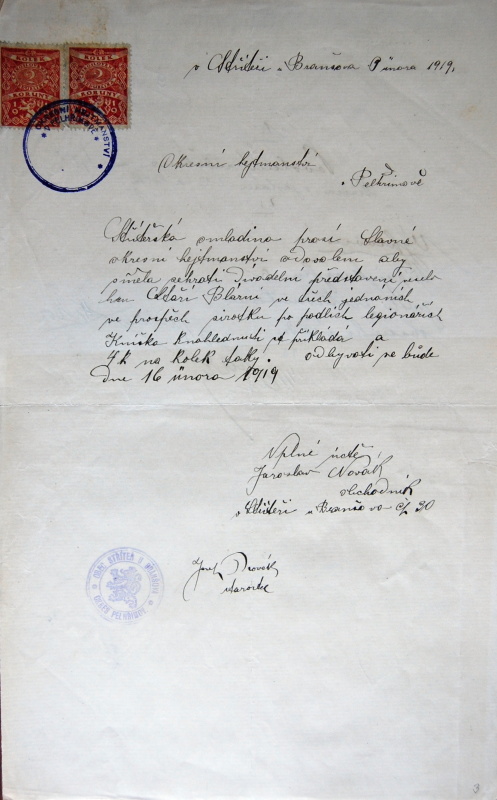 KOLEK
2
KORUNY
KOLEK
2
KORUNY
v Střítěži u Branšova 9 února 1919.
Okresní hejtmanství
v Pelhřimově
Střítežská omladina prosí Slavné
okresní hejtmanství o dovolení aby
směla sehrati divadelní představení veselo
hru Staří Blázni ve třech jednáních
ve prospěch sirotku po padlích legionářích
Knížka knahlednutí se přikládá a
4k na kolek taky. odbyvati se bude
dne 16 února 1919
Vplné úctě,
Jaroslav Novák
obchodník
v Střítěži u Branšova č. 30
Josef Dvořák
starosta
3